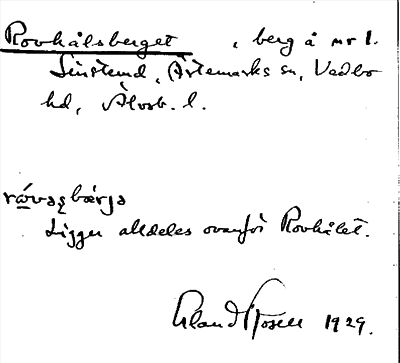 Rovhålsberget, berg å nr 1.
Linstemd, Ärtemarks sn, Vedbo
hd, Älvsb. l.
rǿvasbærja
Ligger alldeles ovanför Rovhålet.
Erland Rosell 1929.